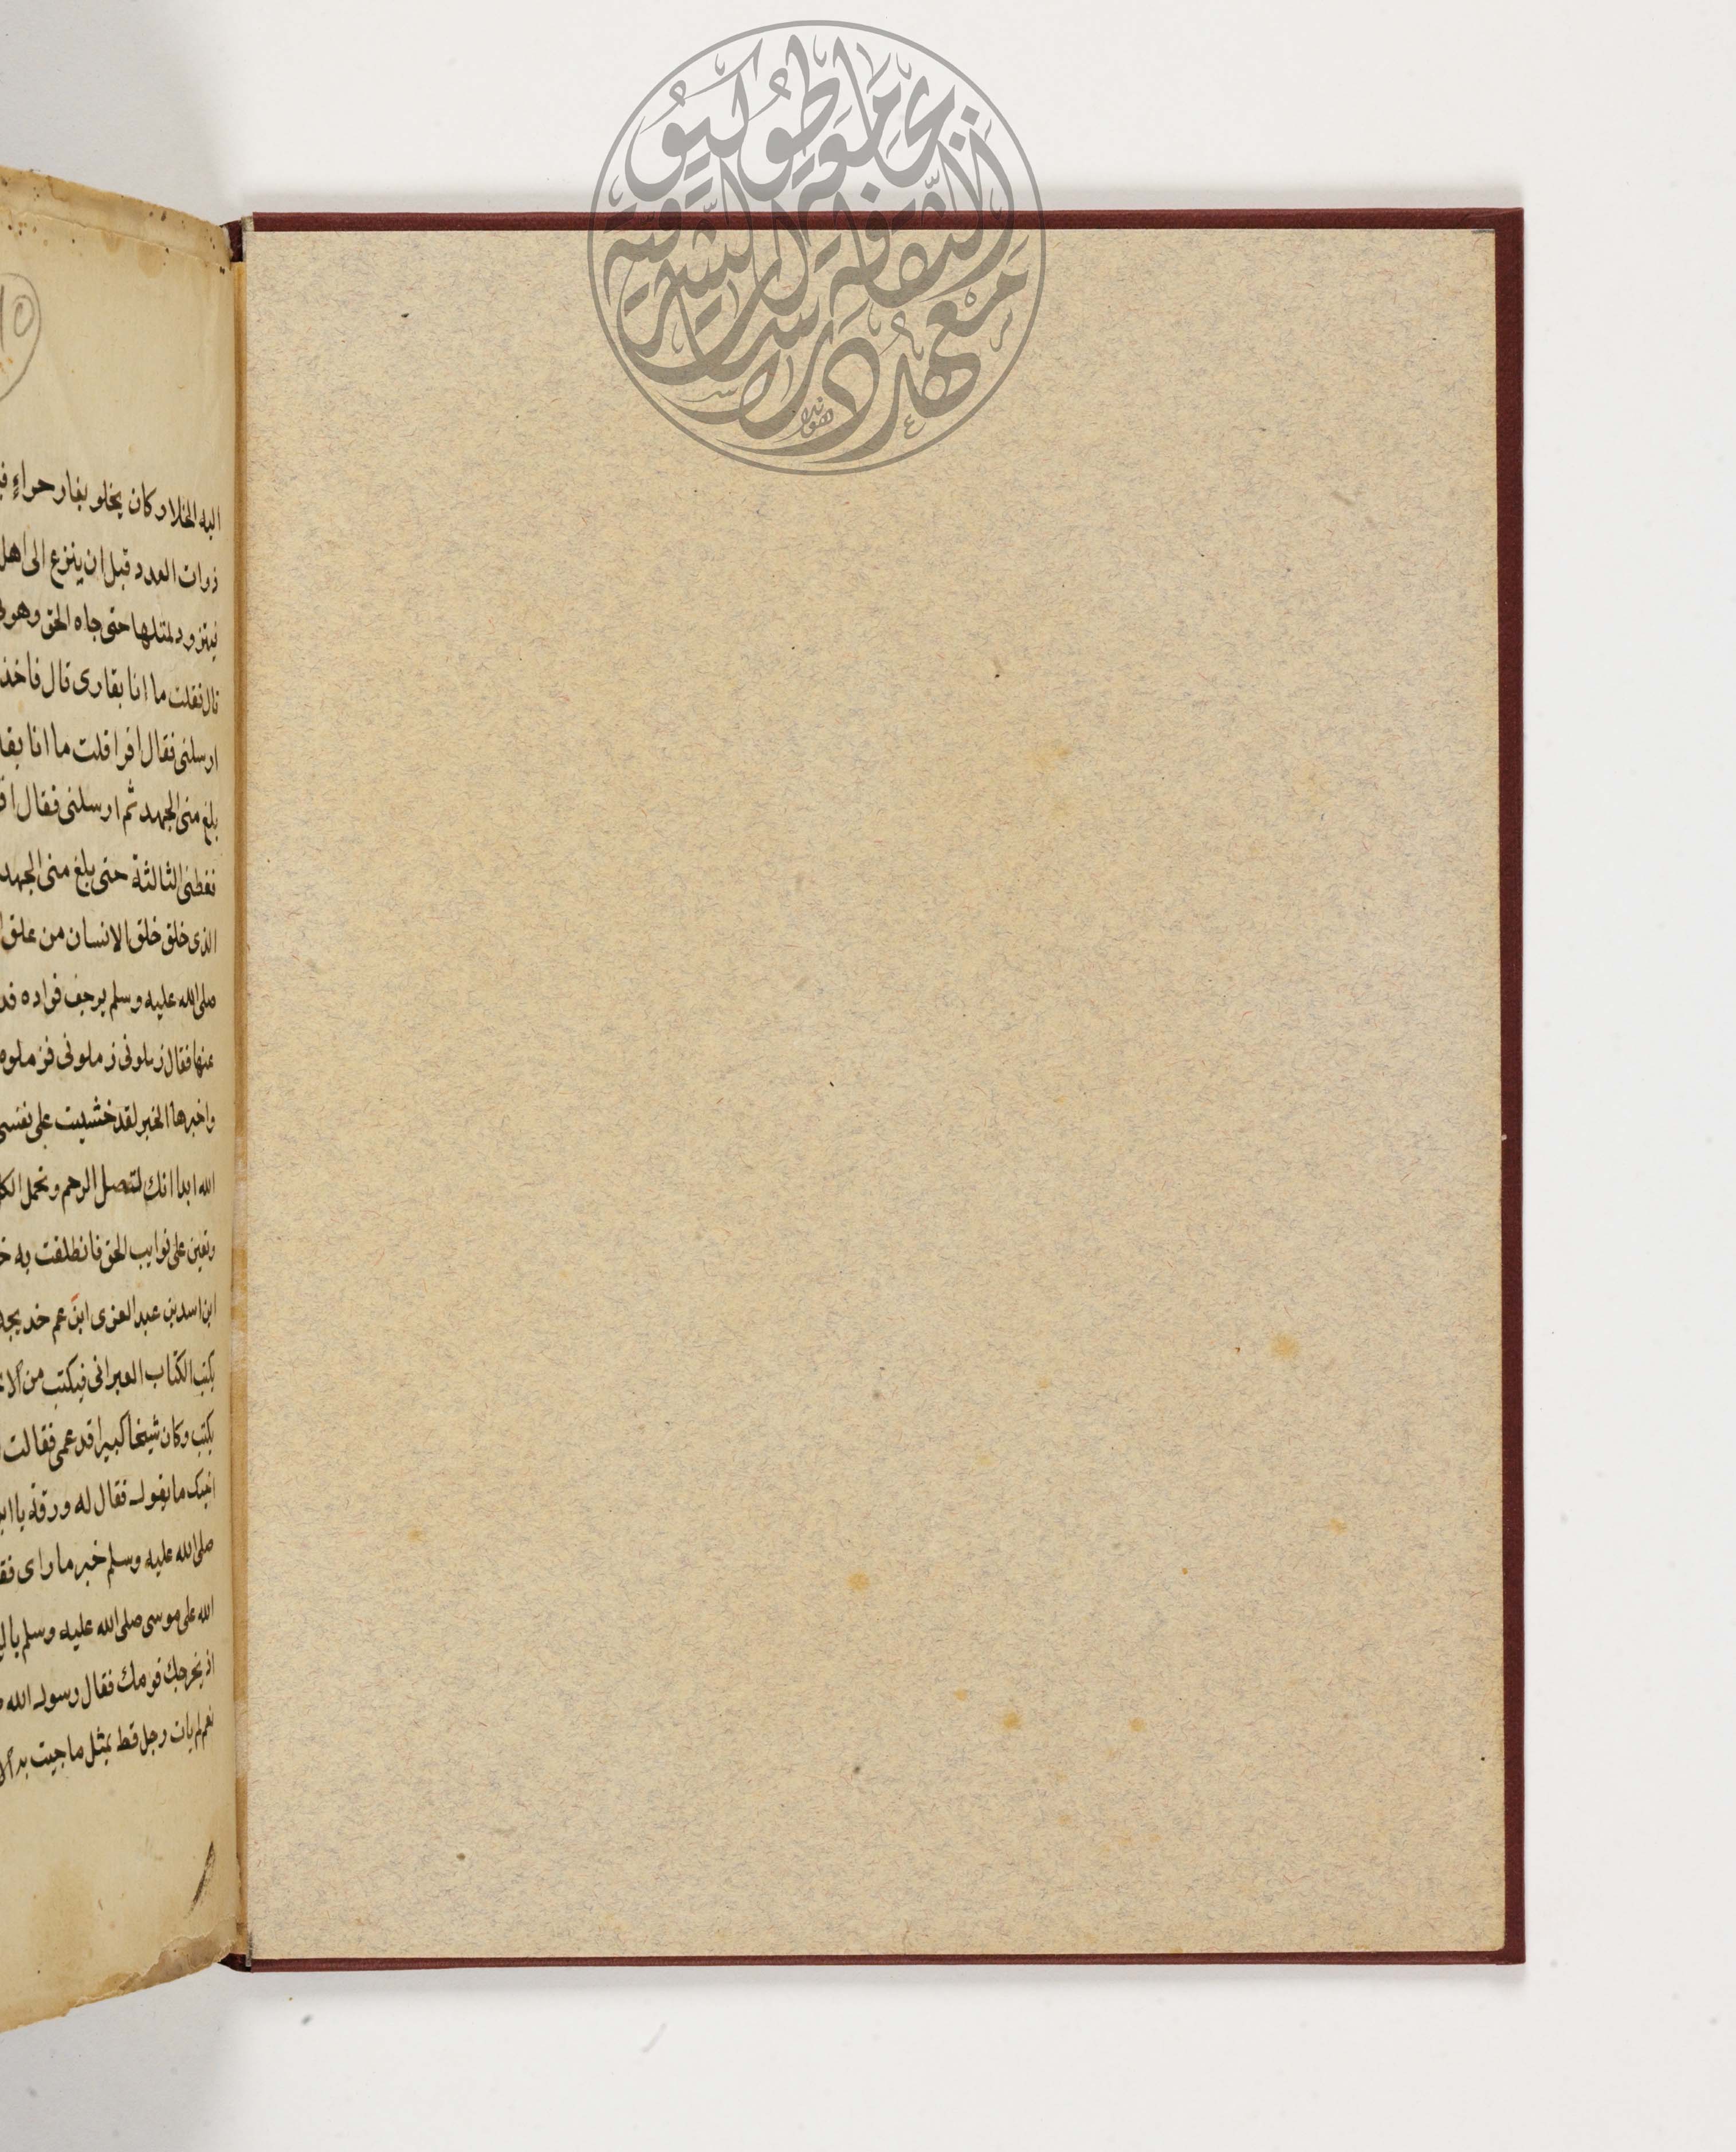 اليه الخلا وكان يخلو بغار حراء
ذوات العدد قبل ان ينزع الى اهل
فيتزود لمثلها حتى جاه الحق وهو
قال فقلت ما انا بقارى قال فاخذ
ارسلنى فقال اقرا قلت ما انا
بلغ منى الجهد ثم ارسلنى فقال
فغطنى الثالثة حتى بلغ منى الجهد
الذى خلق خلق الانسان من علق
صلى الله عليه وسلم يرجف فواده
عنها فقال زملونى زملونى فزملوه
واخبرها الخبر لقد خشيت على نفسى
الله ابدا انك لتصل الرحم وتحمل الكل
وتعين على نوايب الحق فانطلقت به
ابن اسد بن عبد العزى ابن عم خديجة
يكتب الكتاب العبرانى فيكتب من
يكتب وكان شيخا كبيرا قد عمى فقالت
اخيك ما يقول فقال له ورقة يا ابن
صلى الله عليه وسلم خبر ما راى
الله على موسى صلى الله عليه وسلم
اذ يخرجك قومك فقال رسول الله
نعم لم يات رجل قط بمثل ما جيت به
معهد دراسات
الثقافة الشرقية
بجامعة طوكيو